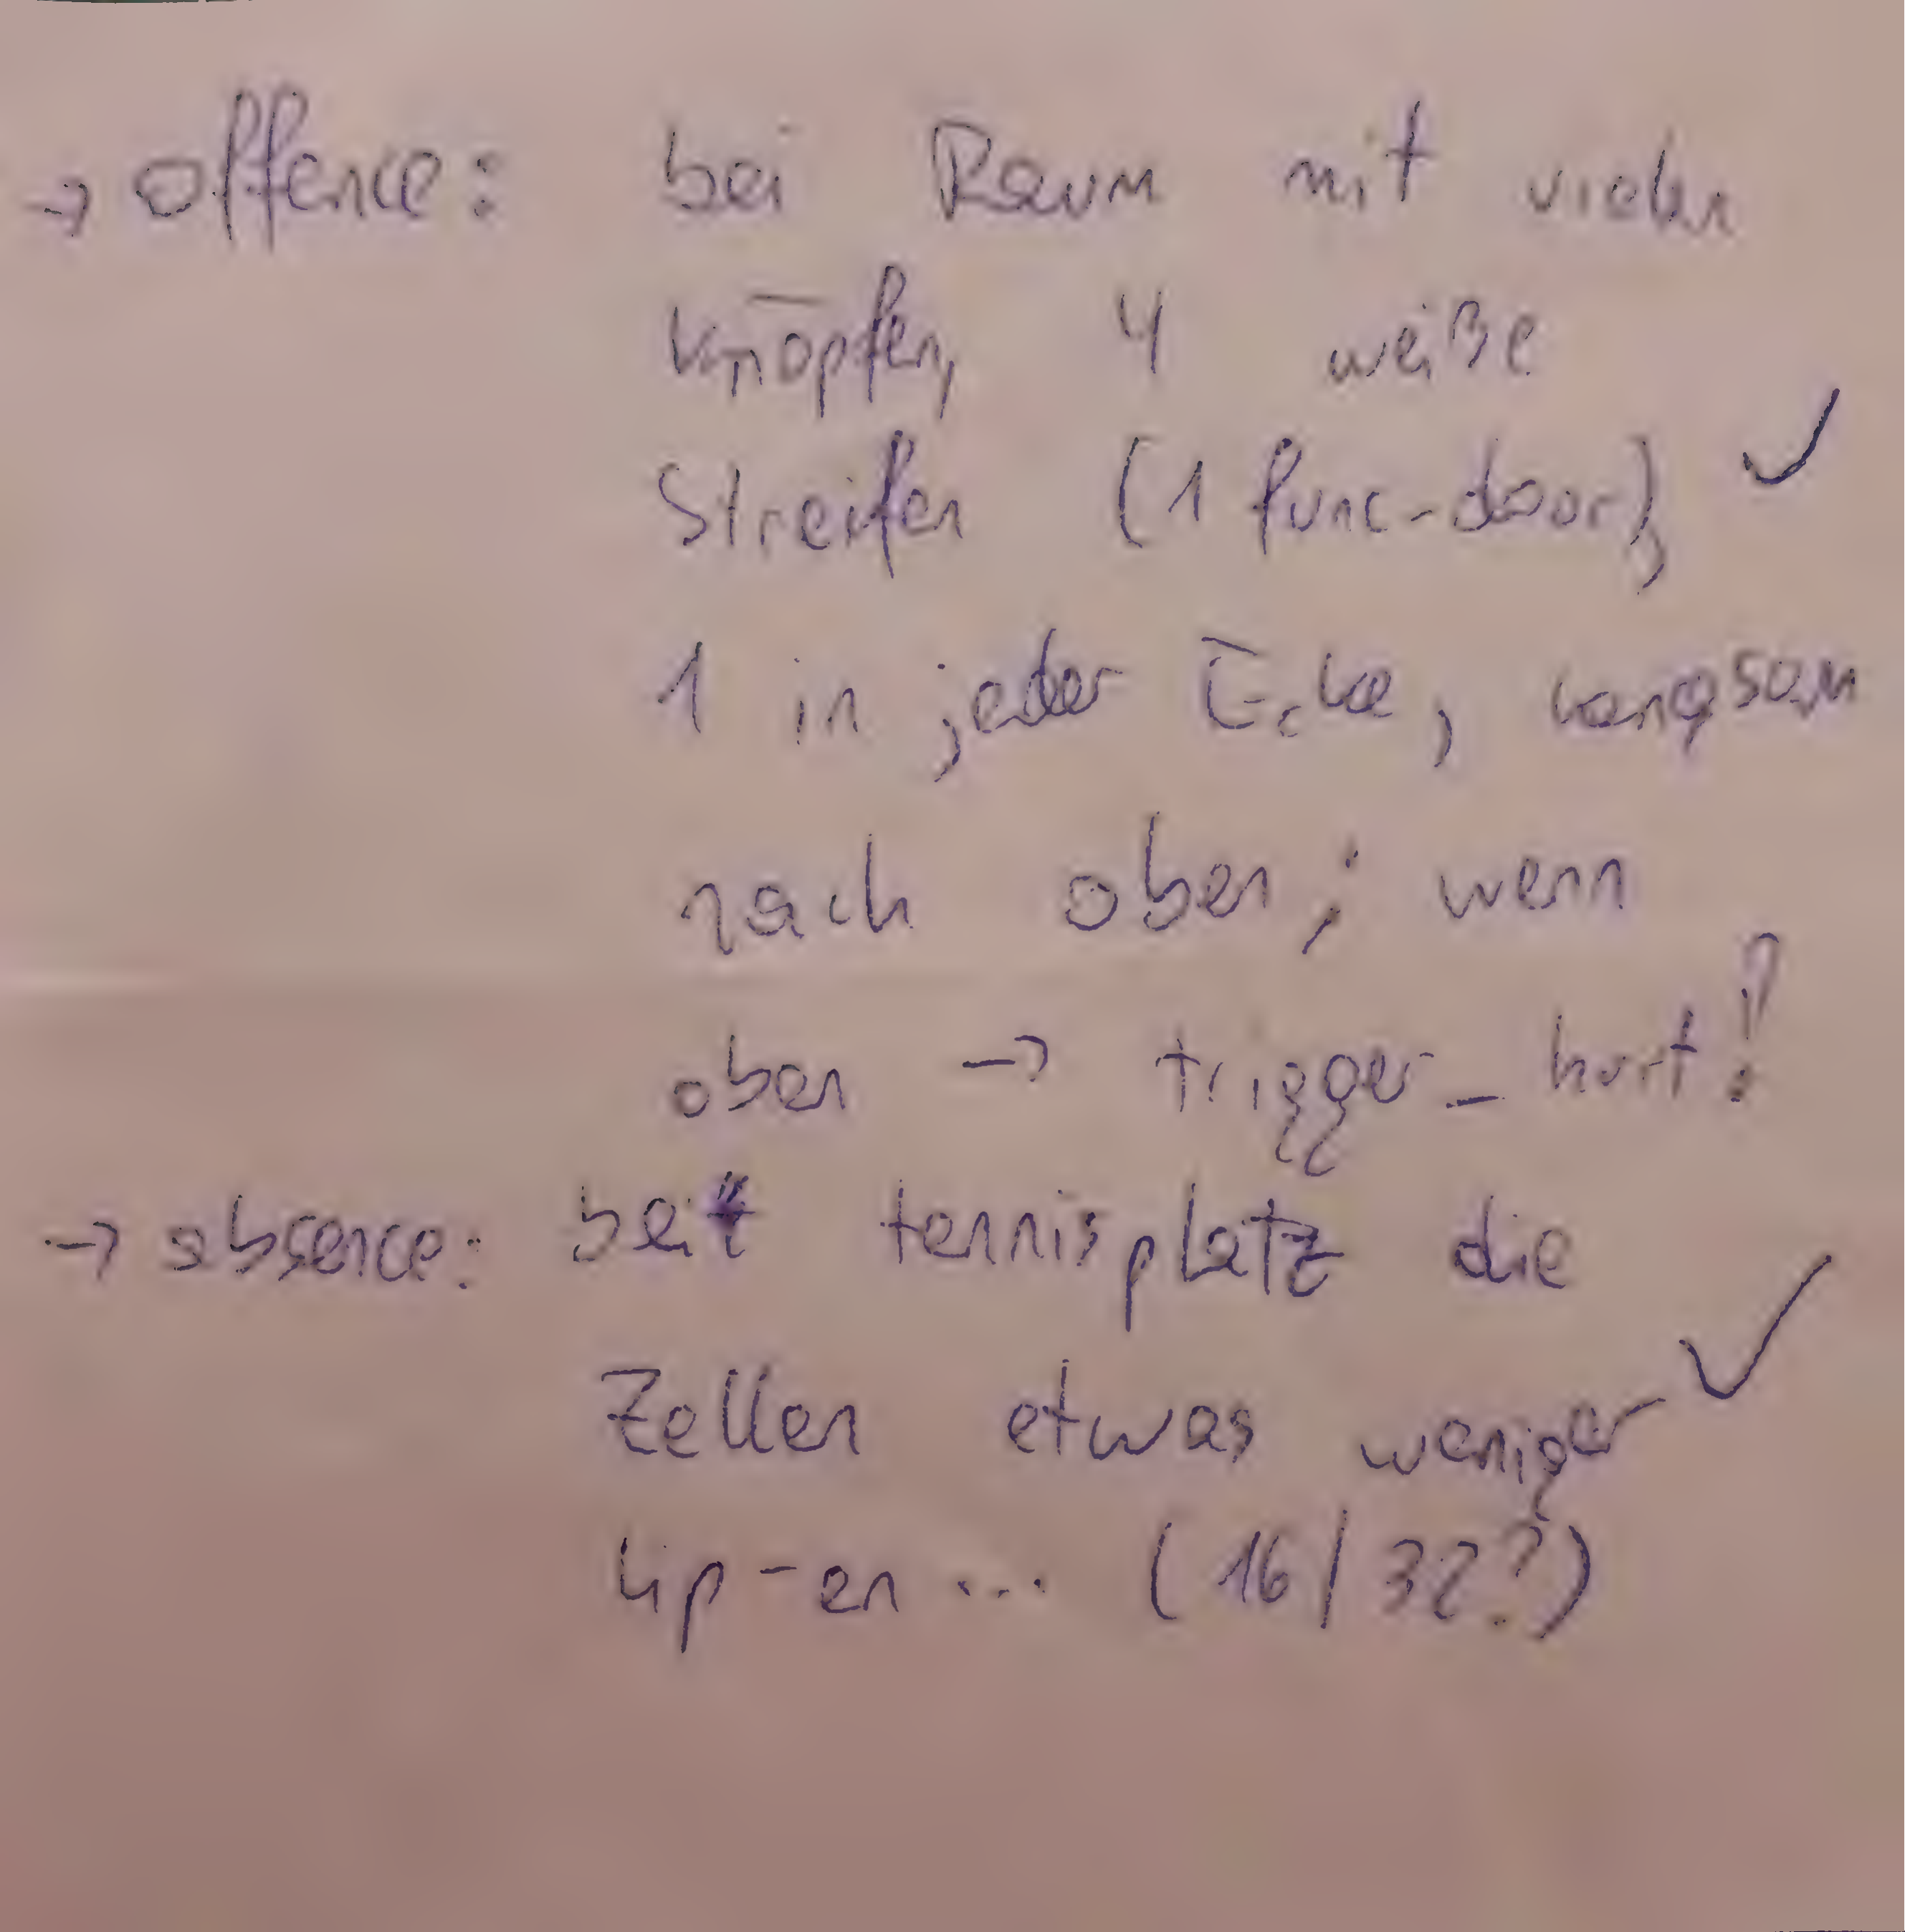 → offence: bei Raum mit vielen
knöpfen, 4 weiße
Streifen (1 func-door), ✓
1 in jeder Ecke, langsam
nach oben; wenn
oben → trigger_hurt!
→ absence: bei tennisplatz die
Zellen etwas weniger ✓
hip-en ... (16/32?)